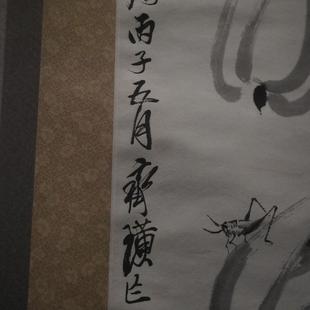 丙子五月齊璜作